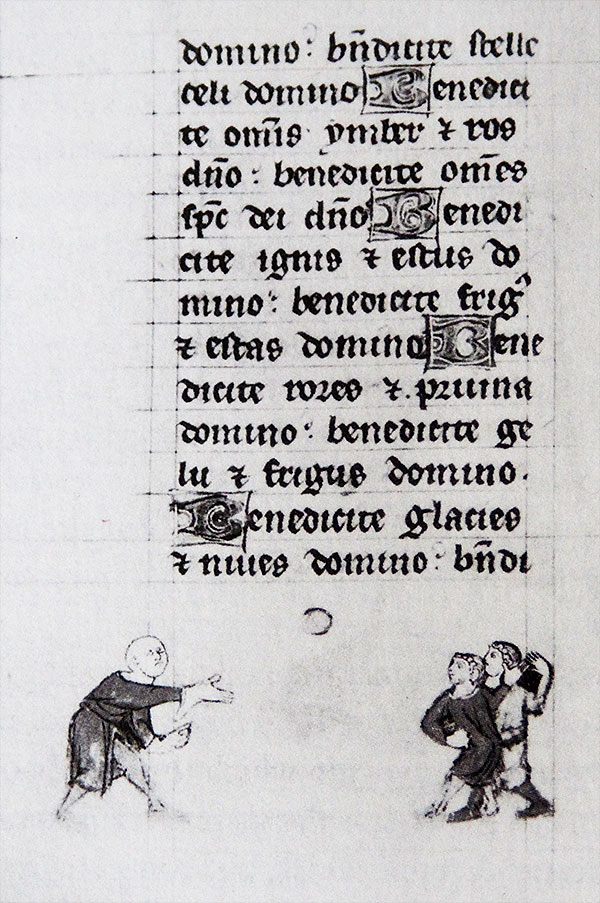 domino: bn̄dicite stelle
celi domino Benedici
te om̄is ymber ⁊ ros
dn̄o: benedicite om̄es
sp̄c dei dn̄o Benedi
cite ignis ⁊ estus do
mino: benedicite frig᷒
⁊ estas domino Bene
dicite rores ⁊ pruina
domino: benedicite ge
lu ⁊ frigus domino.
Benedicite glacies
⁊ niues domino: bn̄di